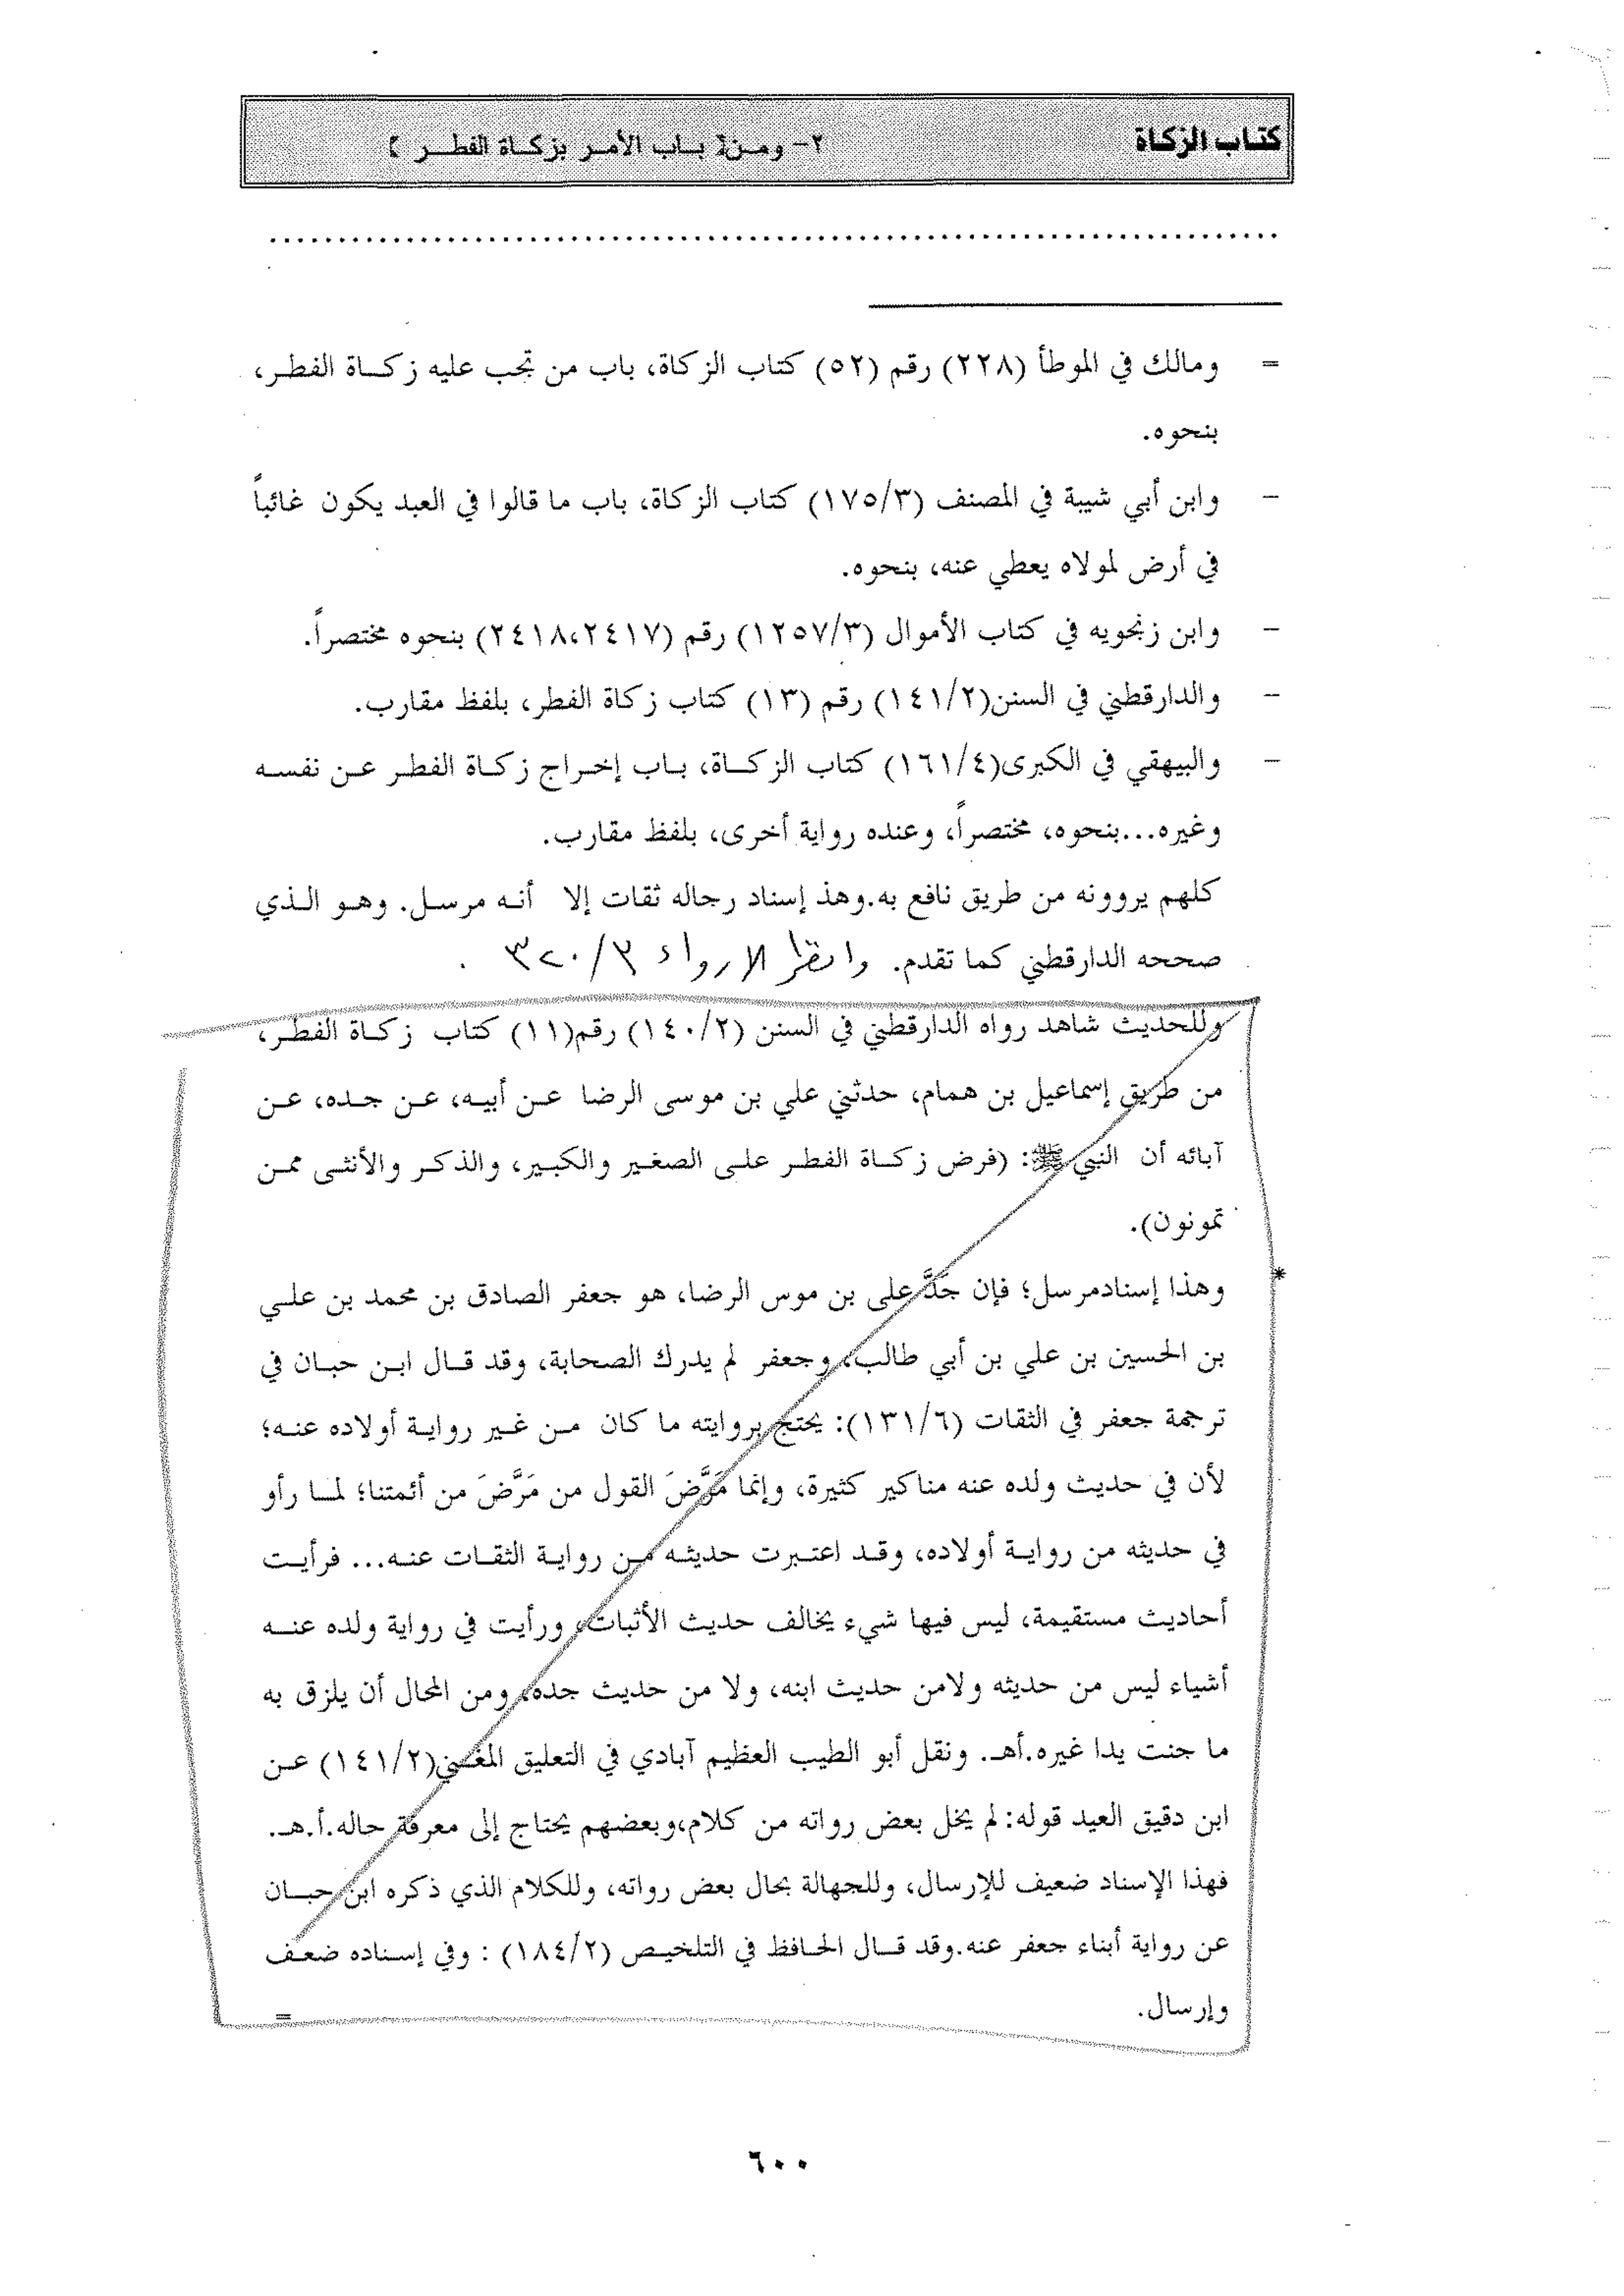 كتاب الزكاة
٢- ومن [ باب الأمر بزكاة الفطر ]
= ومالك في الموطأ (٢٢٨) رقم (٥٢) كتاب الزكاة، باب من تجب عليه زكاة الفطر،
بنحوه.
- وابن أبي شيبة في المصنف (١٧٥/٣) كتاب الزكاة، باب ما قالوا في العبد يكون غائباً
في أرض لمولاه يعطي عنه، بنحوه.
- وابن زنجويه في كتاب الأموال (١٢٥٧/٣) رقم (٢٤١٨،٢٤١٧) بنحوه مختصراً.
- والدارقطني في السنن(١٤١/٢) رقم (١٣) كتاب زكاة الفطر، بلفظ مقارب.
- والبيهقي في الكبرى(١٦١/٤) كتاب الزكاة، باب إخراج زكاة الفطر عن نفسه
وغيره...بنحوه، مختصراً، وعنده رواية أخرى، بلفظ مقارب.
كلهم يروونه من طريق نافع به.وهذ إسناد رجاله ثقات إلا أنه مرسل. وهو الذي
صححه الدارقطني كما تقدم. وانظر الارواء ٣٢٠/٣ .
وللحديث شاهد رواه الدارقطني في السنن (١٤٠/٢) رقم(١١) كتاب زكاة الفطر،
من طريق إسماعيل بن همام، حدثني علي بن موسى الرضا عن أبيه، عن جده، عن
آبائه أن النبي ﷺ: (فرض زكاة الفطر على الصغير والكبير، والذكر والأنثى ممن
تمونون).
* وهذا إسنادمرسل؛ فإن جَدَّ على بن موس الرضا، هو جعفر الصادق بن محمد بن علي
بن الحسين بن علي بن أبي طالب، وجعفر لم يدرك الصحابة، وقد قال ابن حبان في
ترجمة جعفر في الثقات (١٣١/٦): يحتج بروايته ما كان من غير رواية أولاده عنه؛
لأن في حديث ولده عنه مناكير كثيرة، وإنما مَرَّضَ القول من مَرَّضَ من أئمتنا؛ لما رأو
في حديثه من رواية أولاده، وقد اعتبرت حديثه من رواية الثقات عنه... فرأيت
أحاديث مستقيمة، ليس فيها شيء يخالف حديث الأثبات، ورأيت في رواية ولده عنه
أشياء ليس من حديثه ولامن حديث ابنه، ولا من حديث جده، ومن المحال أن يلزق به
ما جنت يدا غيره.أهـ. ونقل أبو الطيب العظيم آبادي في التعليق المغني(١٤١/٢) عن
ابن دقيق العيد قوله: لم يخل بعض رواته من كلام،وبعضهم يحتاج إلى معرفة حاله.أ.هـ.
فهذا الإسناد ضعيف للإرسال، وللجهالة بحال بعض رواته، وللكلام الذي ذكره ابن حبان
عن رواية أبناء جعفر عنه.وقد قال الحافظ في التلخيص (١٨٤/٢) : وفي إسناده ضعف
وإرسال. =
٦٠٠